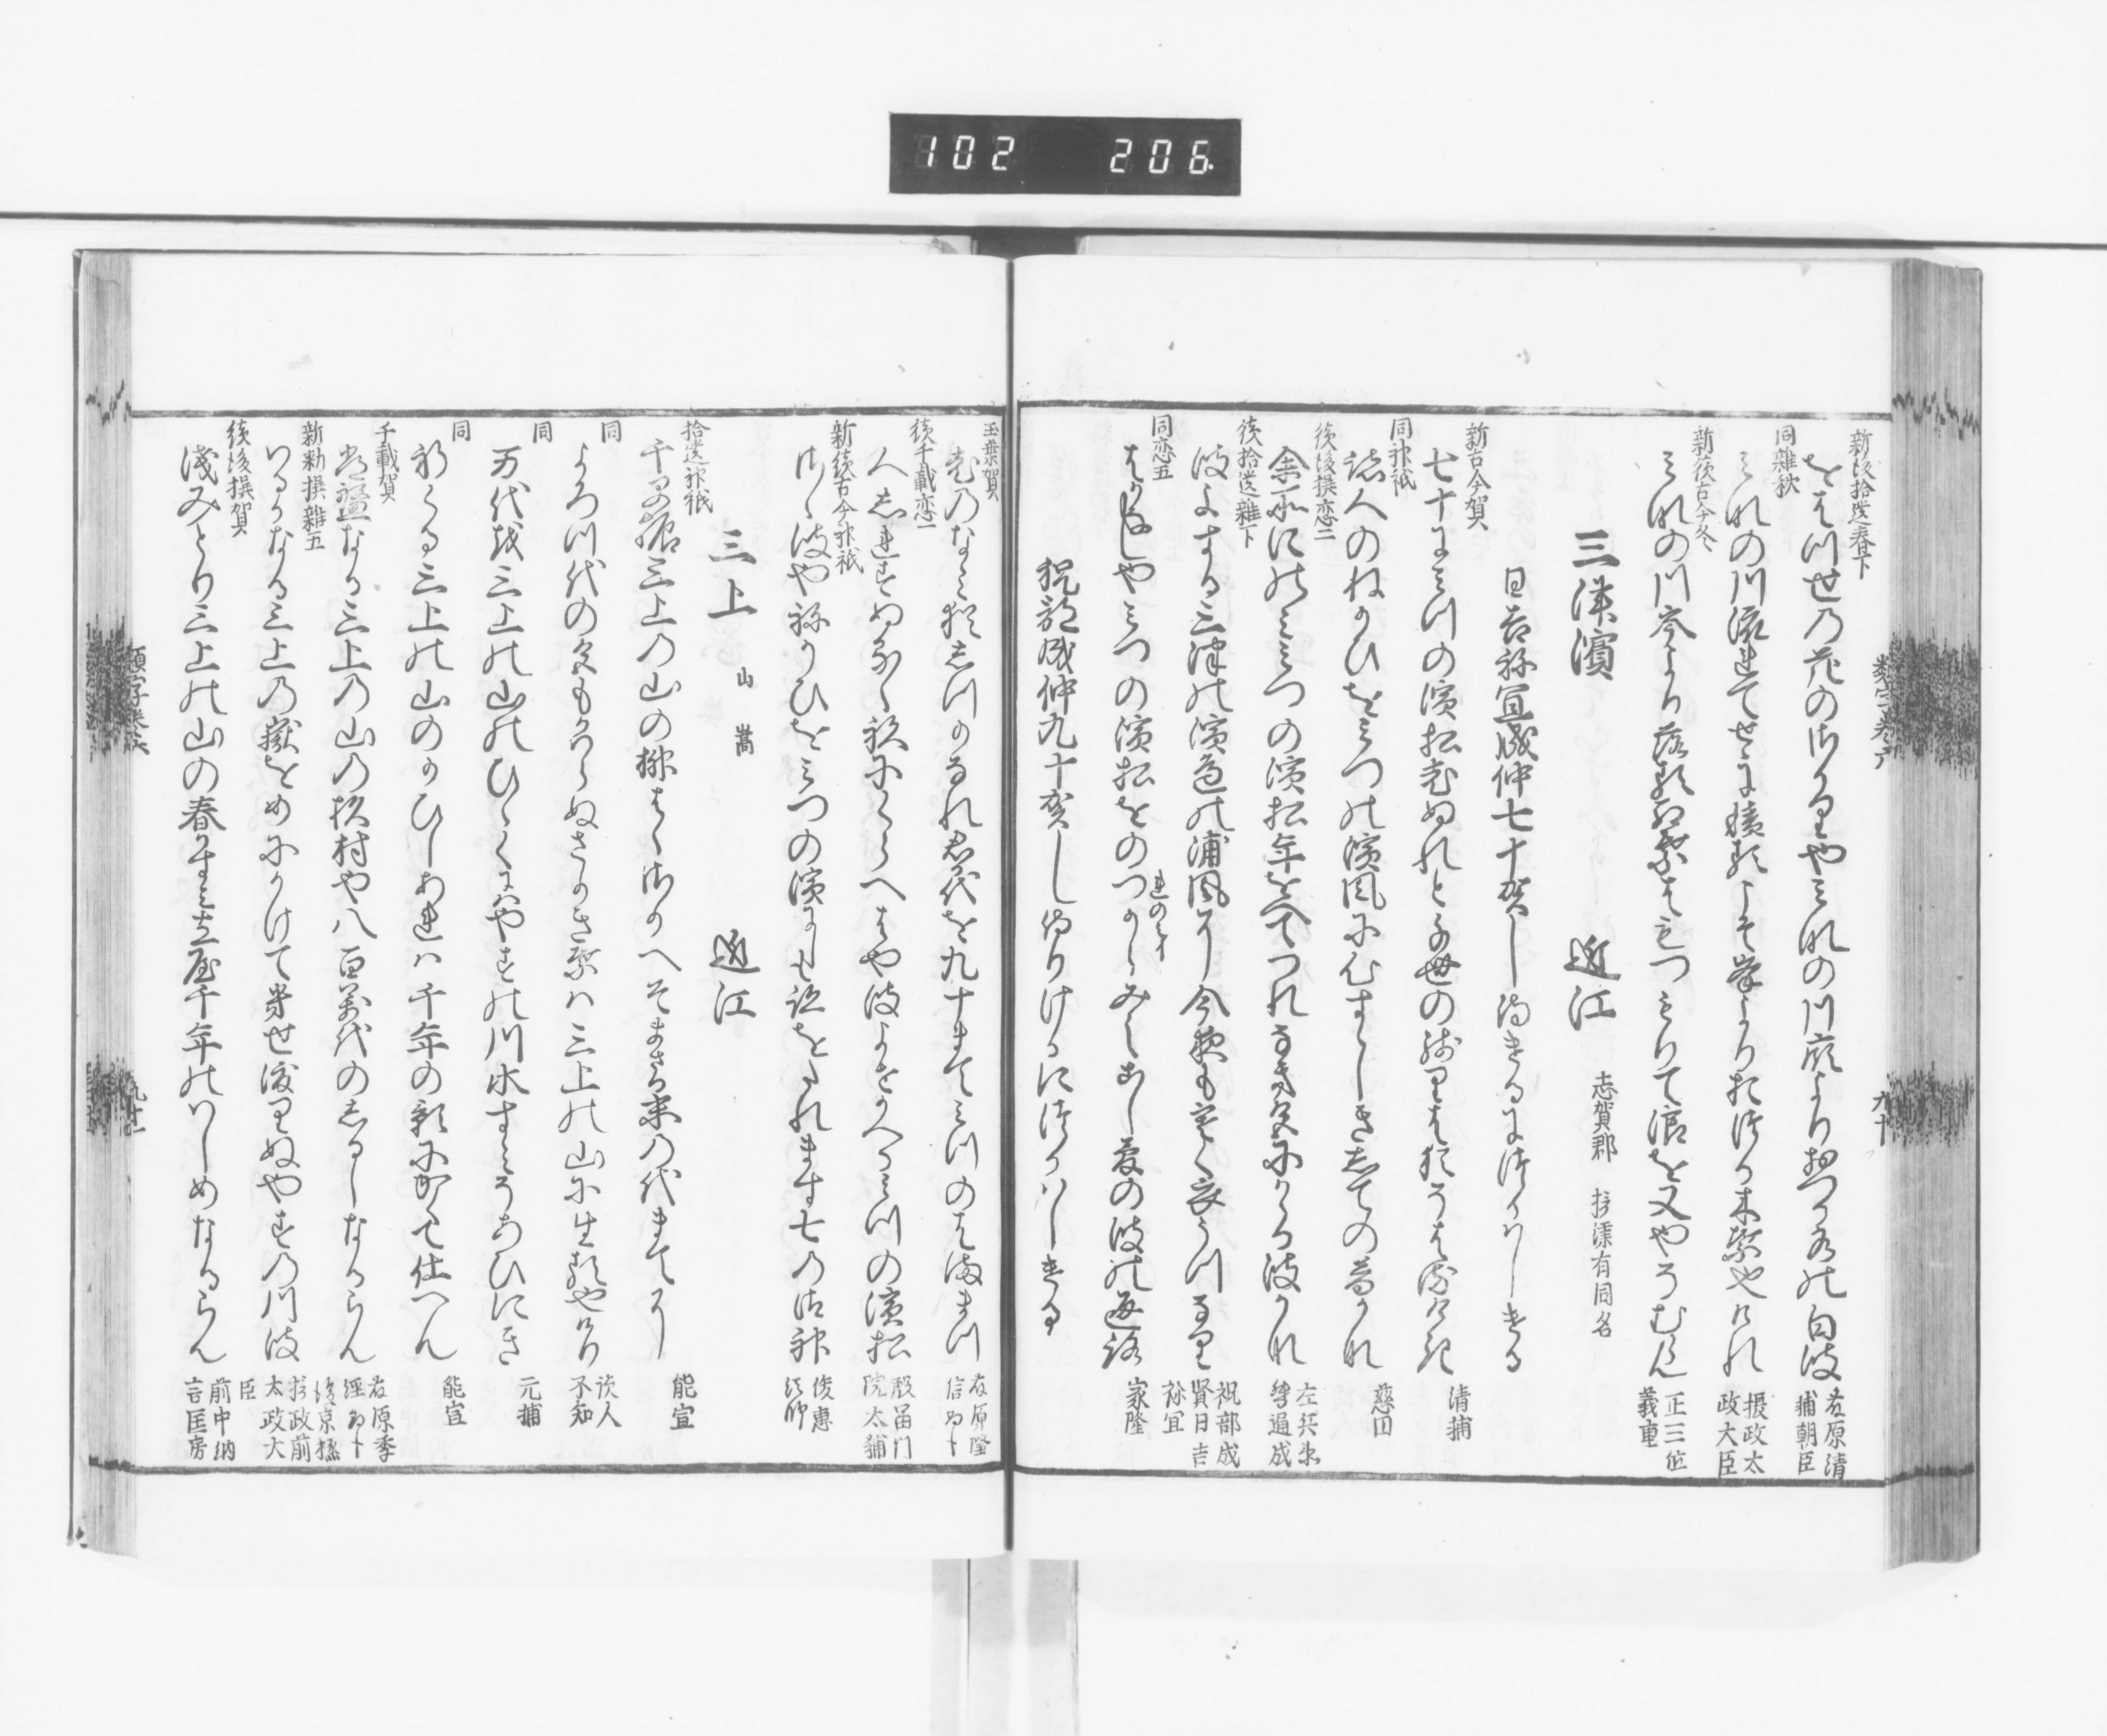 102 206
新後拾遺春下
をそ川世の花のさかりやみなの川底より出るみねの白波
藤原清輔朝臣
同雑秋
みなの川流れてせゝに積るこそ峯よりおつる木葉也けれ
摂政太政大臣
新後古今冬
みなの川岑より落る紅葉はもつもりて浪を又やそむらん
正三位義重
三津濱 近江 志賀郡 摂津有同名
日吉祢宜成仲七十賀し侍けるにつかはしける
新古今賀
七十にみつの濱松老ぬれと千世の残りは猶そはるけき
清輔
同神祇
諸人のねかひをみつの濱風に心すゝしきしての音かな
慈円
後後撰恋二
余所にのみみつの濱松年をへてつれなき色にかゝる波かな
左兵衛督通成
後拾遺雑下
波よする三津の濱邉の浦風に今夜も寒く衣うつなり
祝部成賢日吉祢宜
同恋五
はかなしやみつの濱松をのつからみえこし夢の波の通路
家隆
祝部成仲九十賀し侍りけるにつかはしける
玉葉賀
老のなみ猶しつかなれ君か代を九十まてみつのはままつ
藤原隆信朝臣
續千載恋一
人しれすぬるゝ袂にくらへはや波よせかくるみつの濱松
殷冨門院太輔
新續古今神祇
さゝ波や祢かひをみつの濱にしも跡をたれます七の御神
俊恵法師
三上 山 嵩 近江
拾遺神祇
千早振三上の山の榊はゝ御かへそまさる末の代まてに
能宣
同
よろつ代の色もかはらぬさかき葉は三上の山に生る也けり
読人不知
同
万代を三上の山のひゝくにはやすの川水すみそあひにき
元輔
同
祈くる三上の山のかひしあれは千年の影にかくて仕へん
能宣
千載賀
常盤なる三上の山の杉村や八百萬代のしるしなるらん
藤原季経朝臣
新勅撰雑五
はるかなる三上の嶽をめにかけて幾世渡りぬやすの川波
後京極摂政前太政大臣
續後撰賀
浅みとり三上の山の春かすみ立屋千年のはしめなるらん
前中納言匡房
類字巻六 九十
類字巻六 九十一